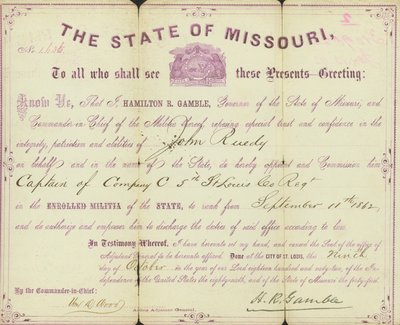 THE STATE OF MISSOURI,
To all who shall see these Presents Greeting:
Know Ye, That I, HAMILTON R. GAMBLE, Governor of the State of Missouri, and
Commander-in-Chief of the Militia thereof, reposing special trust and confidence in the
integrity, patriotism and abilities of John Ruedy
on behalf and in the name of the State, do hereby appoint and Commission him
Captain of Company C 5th St Louis Co Regt
in the ENROLLED MILITIA of the STATE, to rank from September 11th 1862
and do authorize and empower him to discharge the duties of said office according to law.
In Testimony Whereof, I have hereunto set my hand, and caused the Seal of the office of
Adjutant General to be hereunto affixed. Done at the CITY OF ST. LOUIS, this Ninth
day of October in the year of our Lord eighteen hundred and sixty-two, of the In-
dependence of the United States the eighty-seventh, and of the State of Missouri the forty-first.
By the Commander-in-Chief:
H. R. Gamble
Acting Adjutant General.